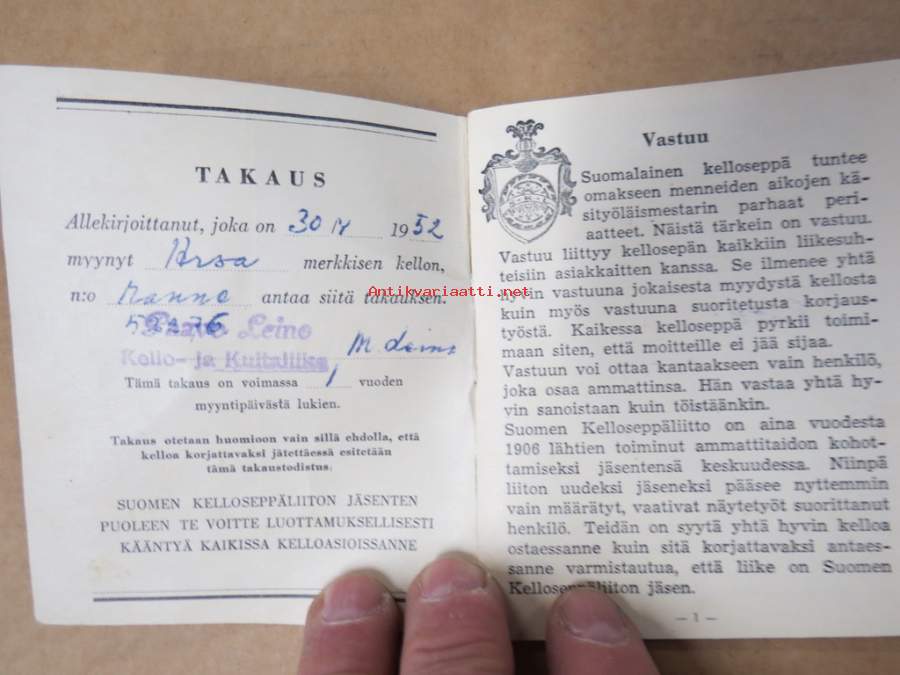 TAKAUS
Allekirjoittanut, joka on 30 1952
myynyt Arsa merkkisen kellon,
n:o antaa siitä takauksen.
Leino
Kello- ja Kultaliike
Tämä takaus on voimassa 1 vuoden
myyntipäivästä lukien.
Takaus otetaan huomioon vain sillä ehdolla, että
kelloa korjattavaksi jätettäessä esitetään
tämä takaustodistus.
SUOMEN KELLOSEPPÄLIITON JÄSENTEN
PUOLEEN TE VOITTE LUOTTAMUKSELLISESTI
KÄÄNTYÄ KAIKISSA KELLOASIOISSANNE
Vastuu
Suomalainen kelloseppä tuntee
omakseen menneiden aikojen kä-
sityöläismestarin parhaat peri-
aatteet. Näistä tärkein on vastuu.
Vastuu liittyy kellosepän kaikkiin liikesuh-
teisiin asiakkaitten kanssa. Se ilmenee yhtä
hyvin vastuuna jokaisesta myydystä kellosta
kuin myös vastuuna suoritetusta korjaus-
työstä. Kaikessa kelloseppä pyrkii toimi-
maan siten, että moitteille ei jää sijaa.
Vastuun voi ottaa kantaakseen vain henkilö,
joka osaa ammattinsa. Hän vastaa yhtä hy-
vin sanoistaan kuin töistäänkin.
Suomen Kelloseppäliitto on aina vuodesta
1906 lähtien toiminut ammattitaidon kohot-
tamiseksi jäsentensä keskuudessa. Niinpä
liiton uudeksi jäseneksi pääsee nyttemmin
vain määrätyt, vaativat näytetyöt suorittanut
henkilö. Teidän on syytä yhtä hyvin kelloa
ostaessanne kuin sitä korjattavaksi antaes-
sanne varmistautua, että liike on Suomen
Kelloseppäliiton jäsen.
— 1 —
Antikvariaatti.net